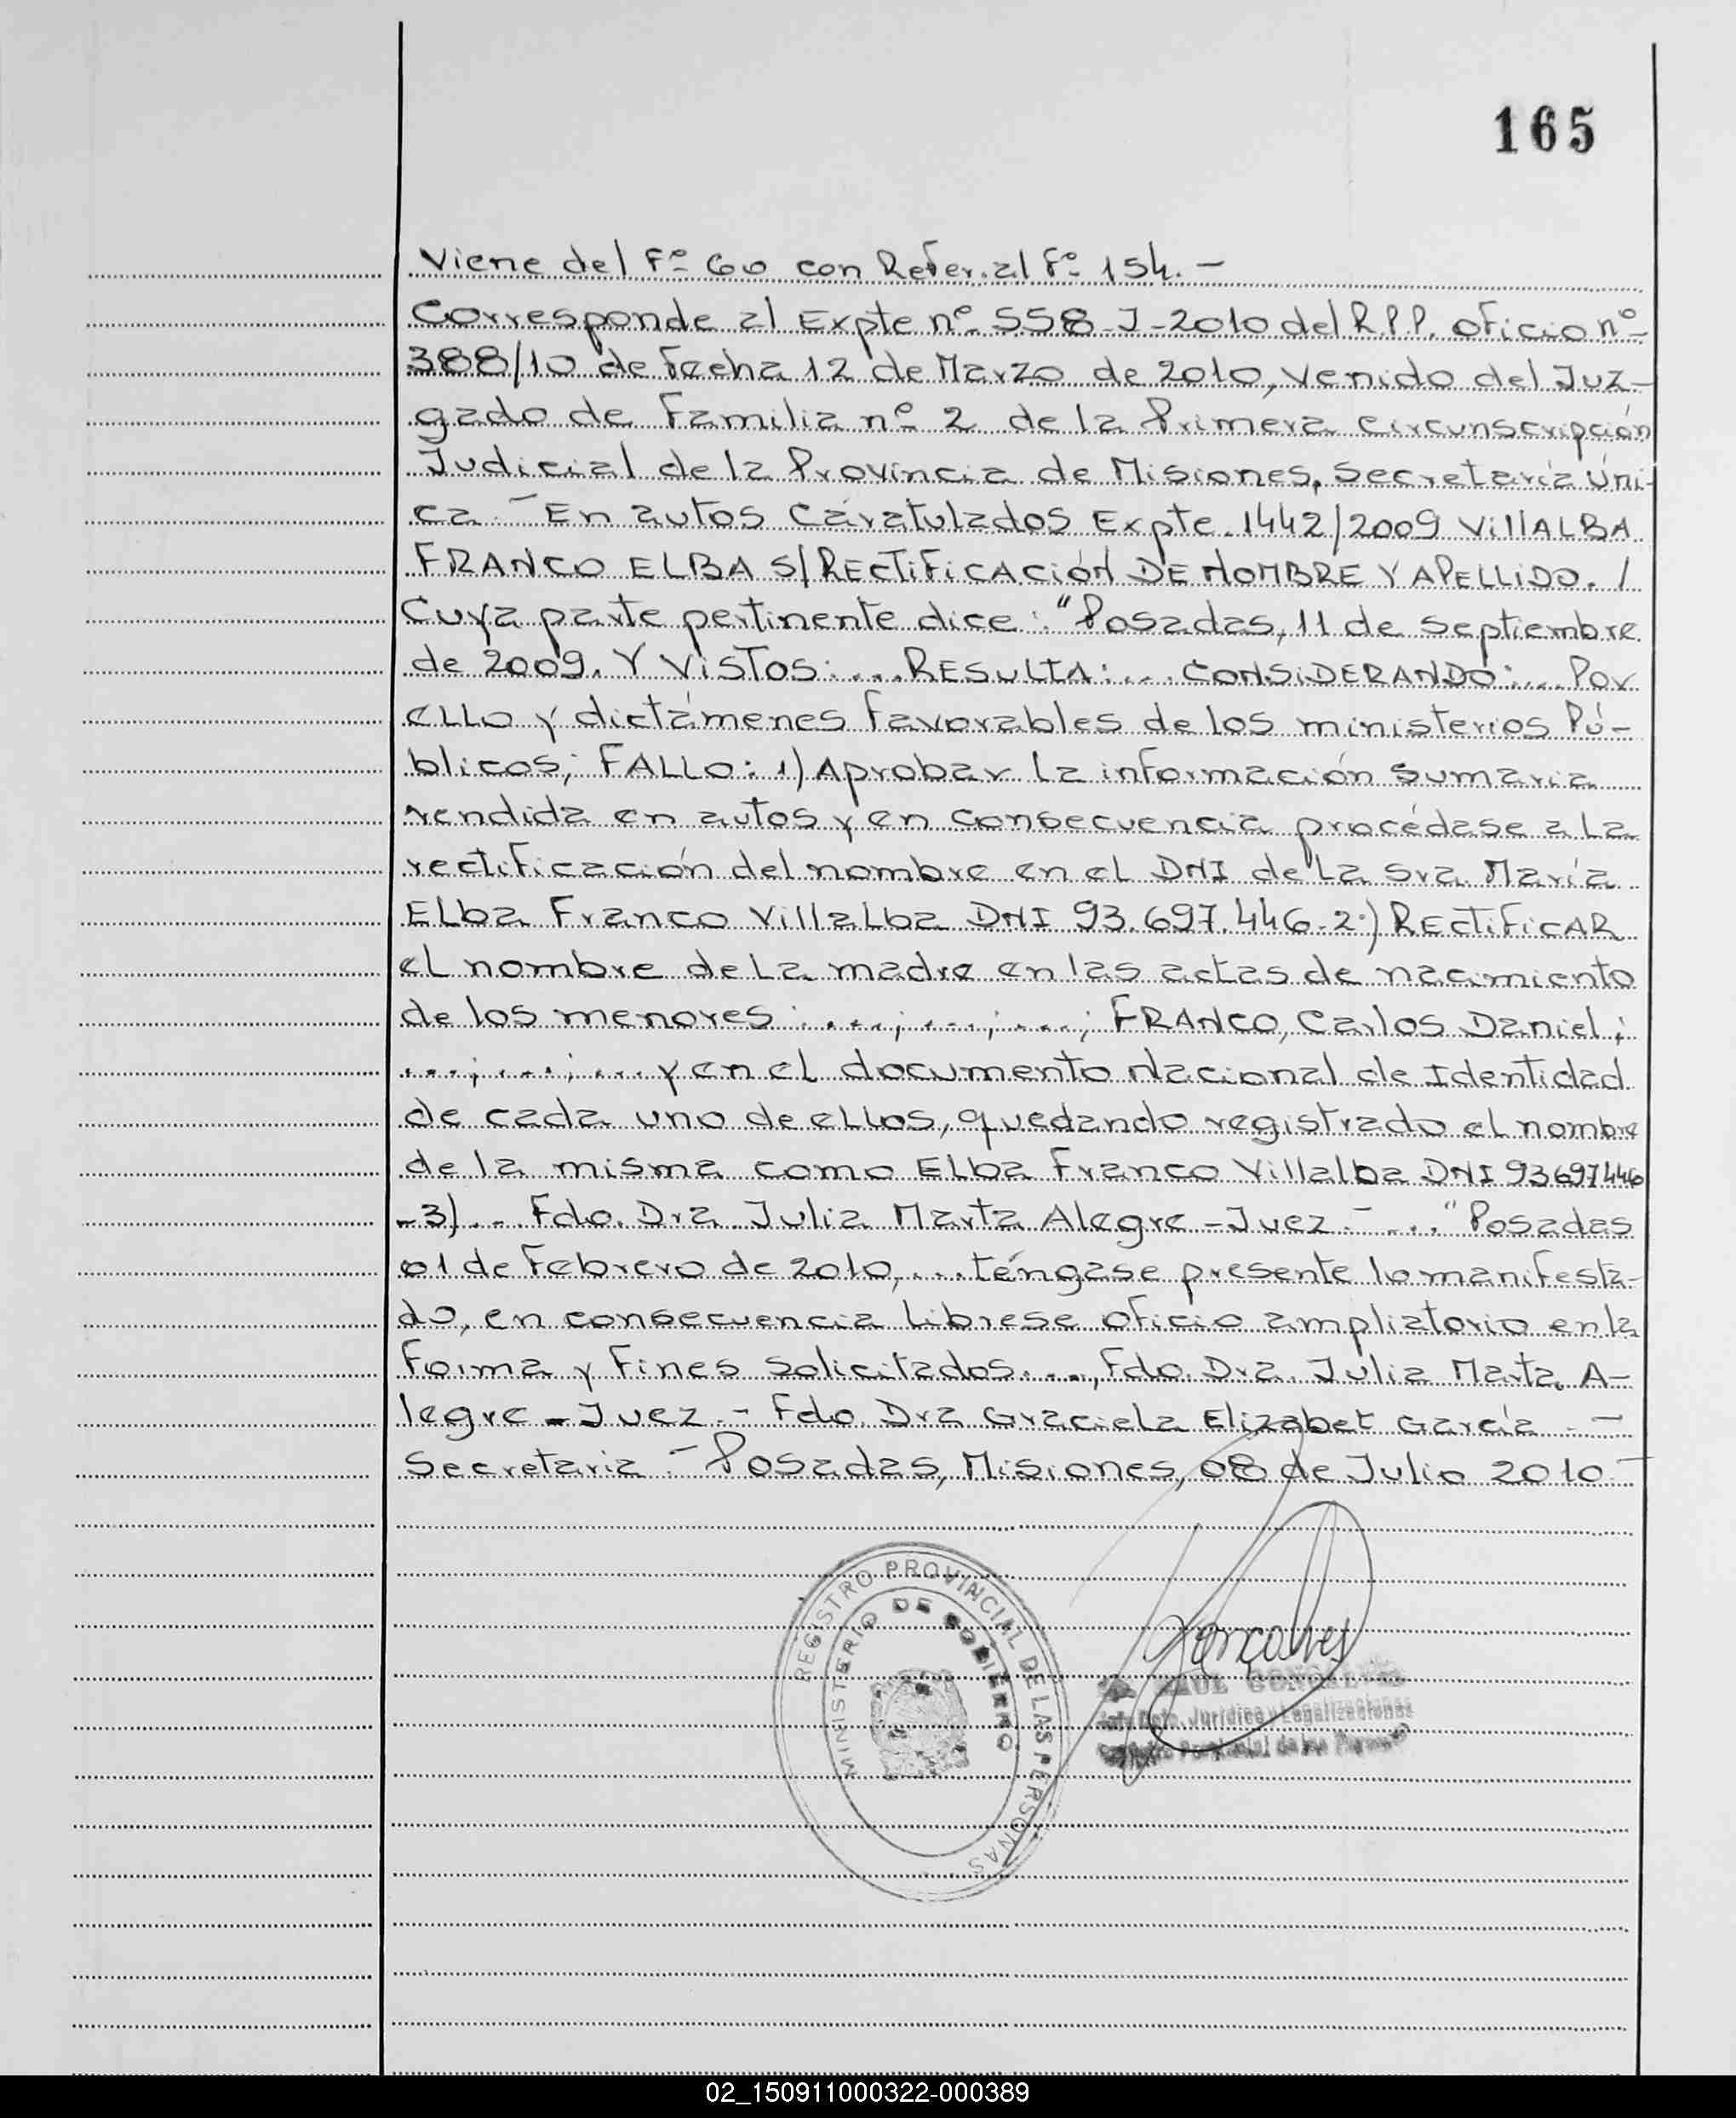 165
Viene del Fº 60 con Refer. al Fº 154.-
Corresponde al Expte nº 558-J-2010 del R.P.P. oficio nº
388/10 de Fecha 12 de Marzo de 2010, Venido del Juz-
gado de Familia nº 2 de la Primera Circunscripción
Judicial de la Provincia de Misiones, Secretaría Úni-
ca.- En autos Caratulados Expte. 1442/2009 VillALBA
FRANCO ELBA S/RECTiFiCACión DE NOMBRE Y APELLiDO. /
Cuya parte pertinente dice: "Posadas, 11 de Septiembre
de 2009. Y ViSTOS:....RESULTA:....CONSiDERANDO:....Por
ELLO y dictámenes favorables de los ministerios Pú-
blicos; FALLO: 1) Aprobar La información Sumaria
rendida en autos y en consecuencia procédase a La
rectificación del nombre en el DNI de La Sra. María
ELba Franco VillaLba DNI 93.697.446-2.) RECTiFiCAR
el nombre de La madre en las actas de nacimiento
de los menores:....;....;....; FRANCO, Carlos Daniel;
....;....;.... y en el documento Nacional de Identidad
de cada uno de ellos, quedando registrado el nombre
de la misma como Elba Franco Villalba DNI 93697446
-3)... Fdo. Dra. Julia Marta Alegre - Juez.-...."Posadas
01 de Febrero de 2010,....téngase presente lo manifesta-
do, en consecuencia Librese oficio ampliatorio en la
Forma y Fines Solicitados...., Fdo. Dra. Julia Marta A-
legre - Juez.- Fdo. Dra Graciela Elizabet García.-
Secretaria.- Posadas, Misiones, 08 de Julio 2010.-
REGISTRO PROVINCIAL DE LAS PERSONAS
MINISTERIO DE GOBIERNO
Gonçalves
RAUL GONÇALVES
Jefe Dpto. Jurídico y Legalizaciones
Registro Provincial de las Personas
02_150911000322-000389